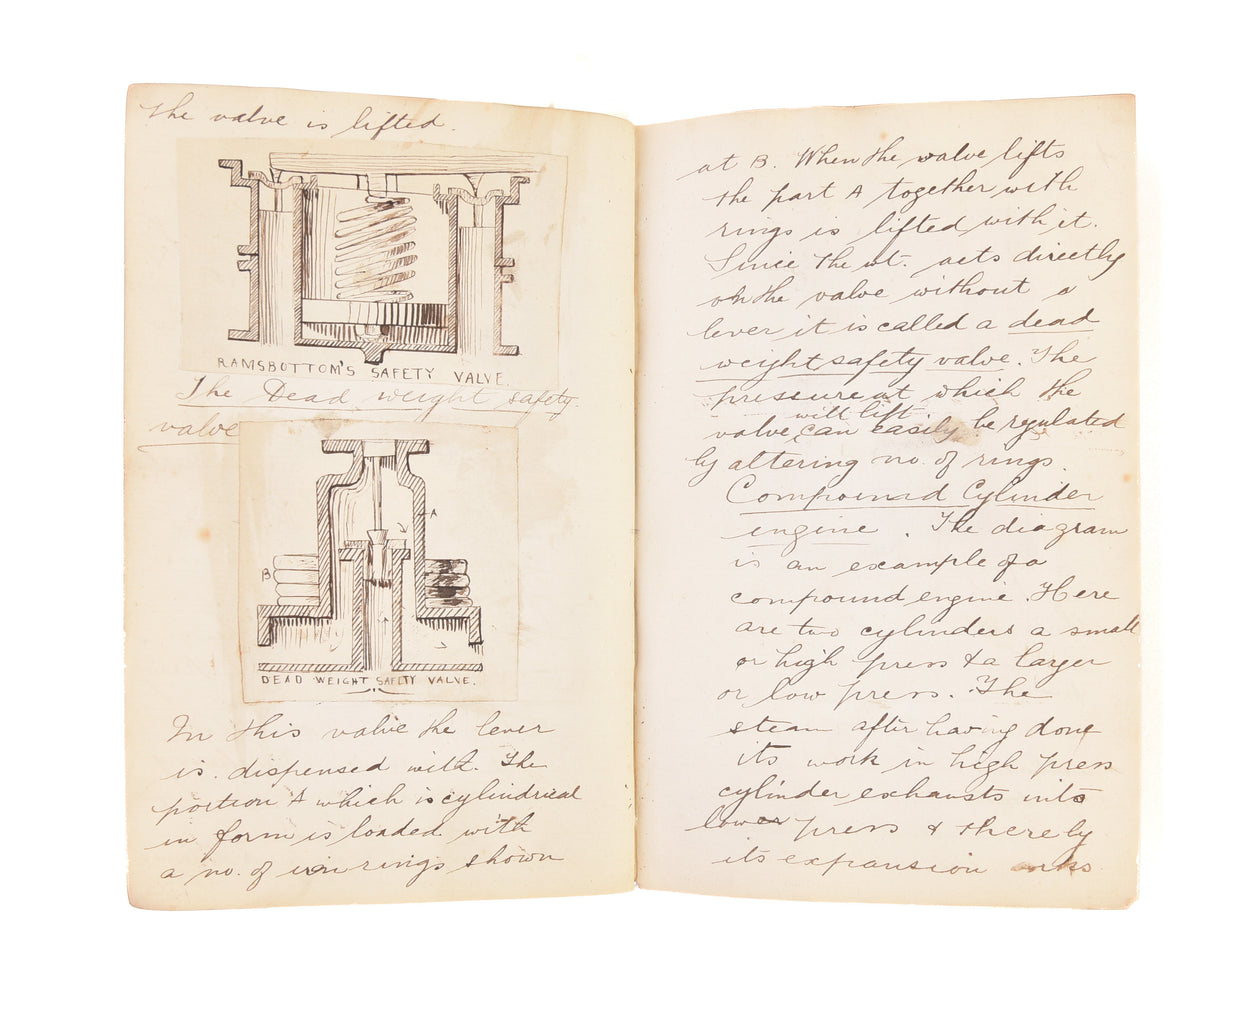 The valve is lifted.
RAMSBOTTOM'S SAFETY VALVE.
The Dead weight safety
valve
A
B
DEAD WEIGHT SAFETY VALVE.
In this valve the lever
is dispensed with. The
portion A which is cylindrical
in form is loaded with
a no. of iron rings shown
at B. When the valve lifts
the part A together with
rings is lifted with it.
Since the wt. acts directly
on the valve without a
lever it is called a dead
weight safety valve. The
pressure at which the
will lift
valve can easily be regulated
by altering no. of rings.
Compound Cylinder
engine. The diagram
is an example of a
compound engine. Here
are two cylinders a small
or high press & a larger
or low press. The
steam after having done
its work in high press
cylinder exhausts into
lower press & thereby
its expansion